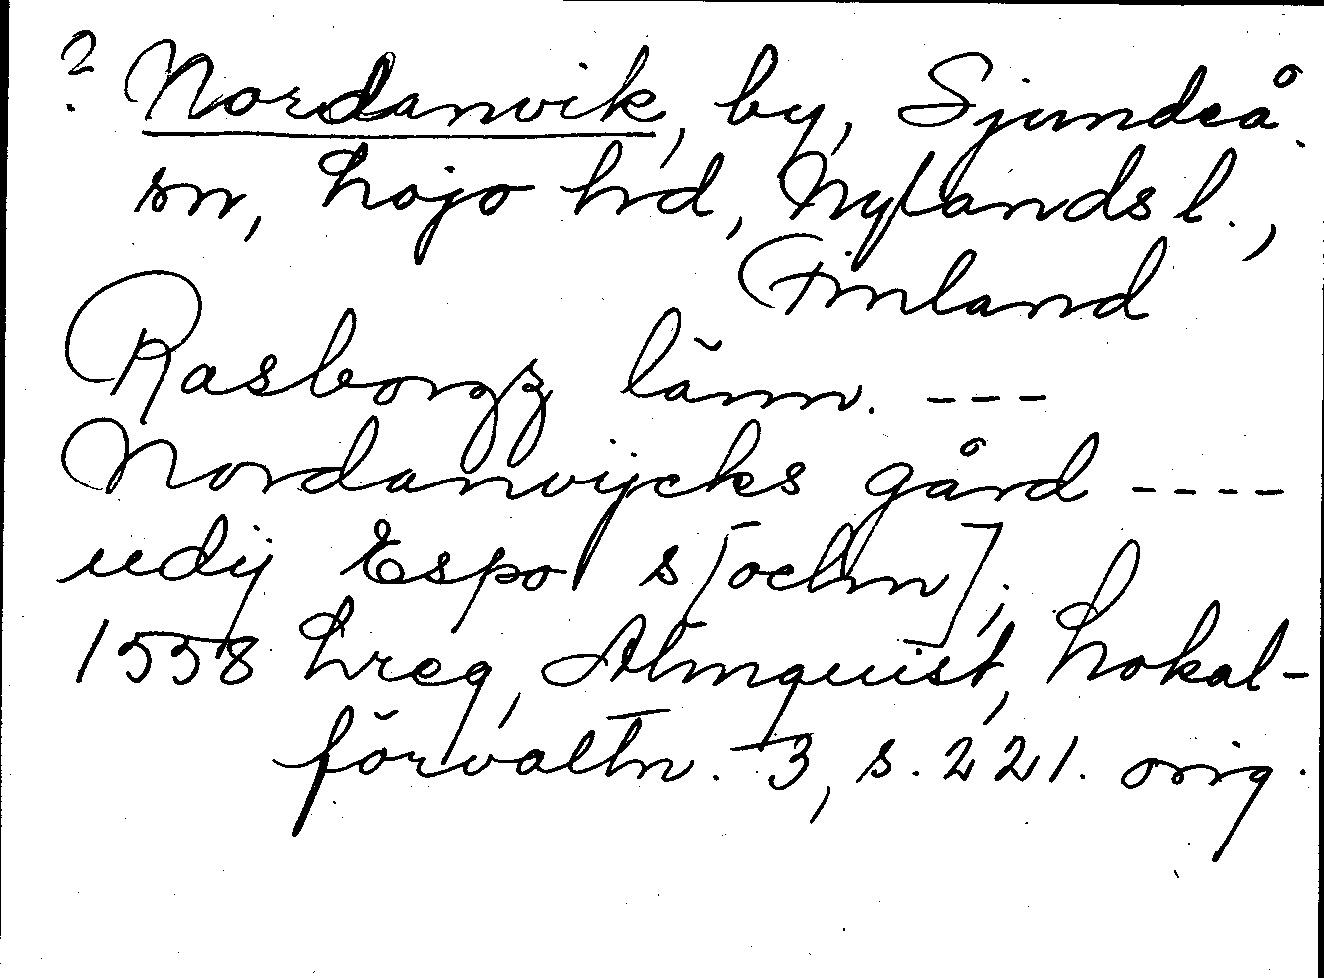 ? Nordanvik, by, Sjundeå
sn, Lojo hd, Nylands l.,
Finland
Rasborgz länn. ---
Nordanvijcks gård ----
udij Espo s[ochn];
1558 Lreg, Almquist, Lokal-
förvaltn. 3, s. 221. orig.